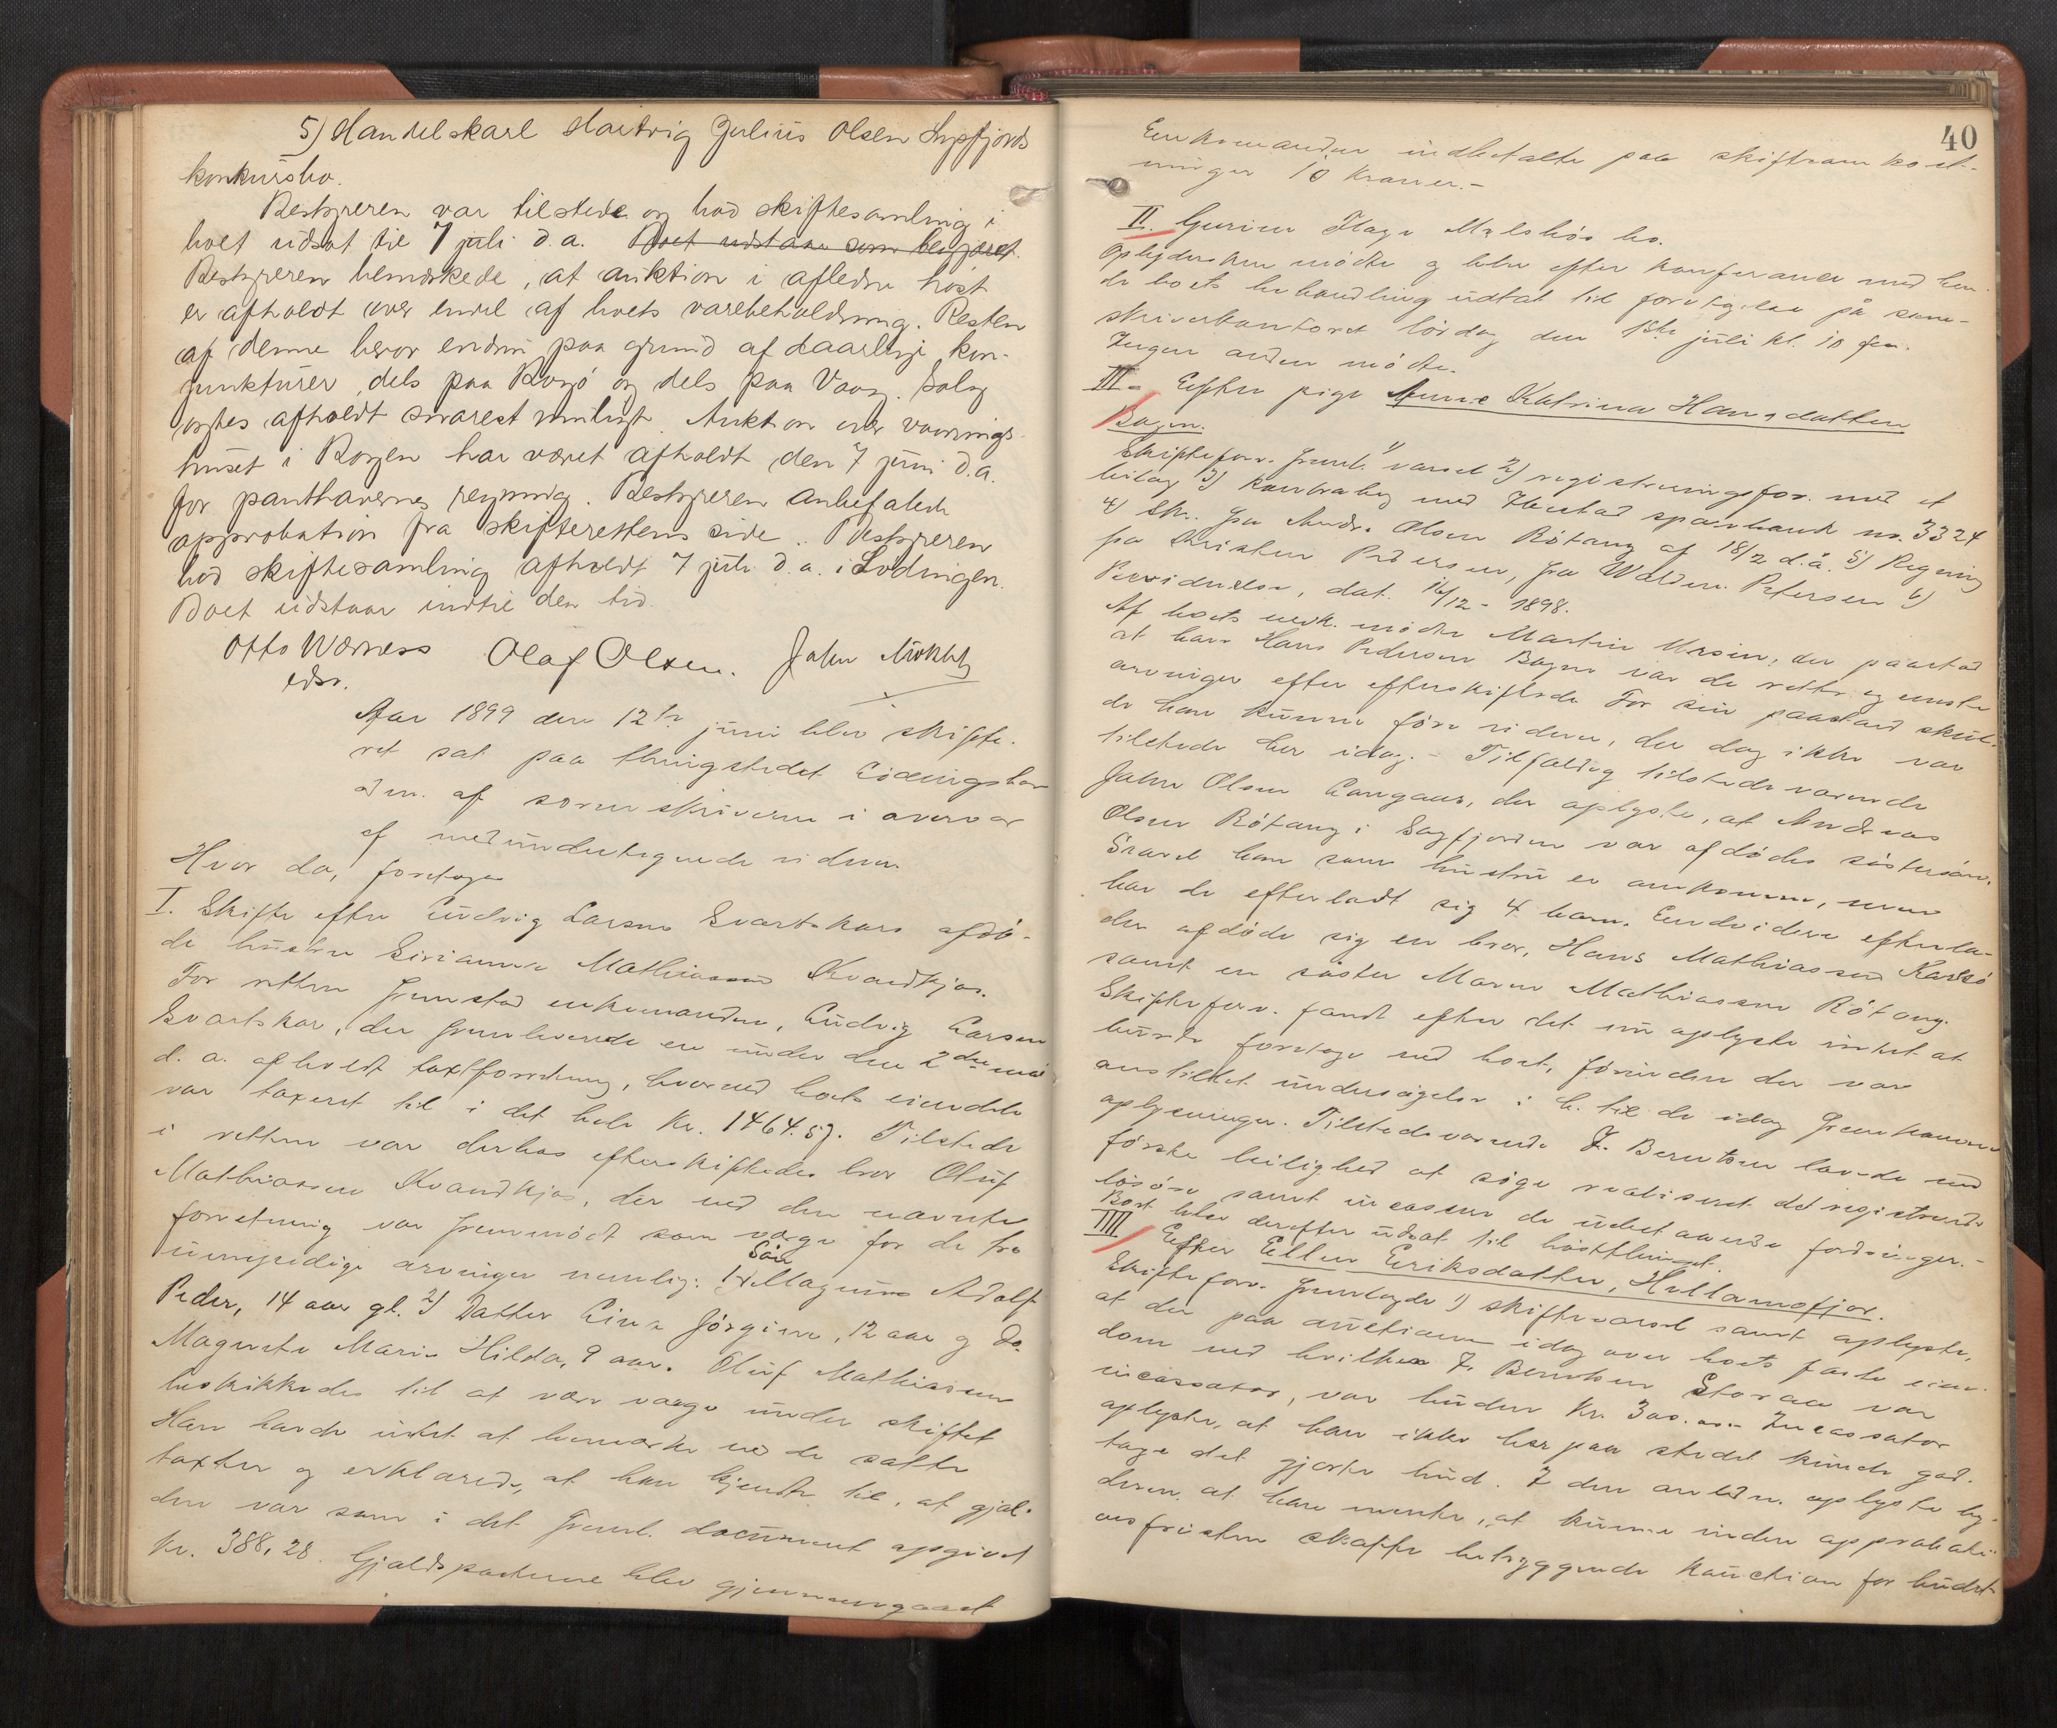 5) Handelskarl Hartvig Julius Olsen Sypfjords
konkursbo.
Bestyreren var tilstede og bad skiftesamling i
boet udsat til 7 juli d.a. Boet udstaar som begjæret.
Bestyreren bemærkede, at auktion i afledne høst
er afholdt over endel af boets varebeholdning. Resten
af denne beror endnu paa grund af daarlige kon-
junkturer, dels paa Rogsø og dels paa Vaag. Salg
agtes afholdt snarest muligt. Auktion over vaanings-
huset i Bogen har været afholdt den 7 juni d.a.
for panthavernes regning. Bestyreren anbefalede
approbation fra skifterettens side. Bestyreren
bad skiftesamling afholdt 7 juli d.a. i Lødingen.
Boet udstaar indtil den tid.
Otto Wærness Olaf Olsen. John
edsv.
Aar 1899 den 12te juni blev skifte-
ret sat paa thingstedet Lødingshav-
den. af sorenskriveren i overvær
af medundertegnede vidner
Hvor da, foretoges
I. Skifte efter Ludvig Larsen Svartskars afdø-
de hustru Sirianna Mathiassen Kvandkjos.
For retten fremstod enkemanden, Ludvig Larsen
Svartskar, der fremleverede en under den 2den mai
d. a. afholdt taxtforretning, hvorved boets eiendele
var taxeret til i det hele kr. 1464.57. Tilstede
i retten var derhos efterskiftedes bror Oluf
Mathiassen Kvandkjos, der ved den nævnte
forretning var fremmødt som værge for de tre
umyndige arvinger nemlig: 1) Søn Villaguns Adolf
Peder, 14 aar gl. 2) Datter Lina Jørgine, 12 aar og do.
Magnete Marie Hilda, 9 aar. Oluf Mathiassen
beskikkedes til at være værge under skiftet
Han havde intet at bemærke ved de satte
taxter og erklærede, at han kjendte til, at gjæl-
den var som i det freml. document opgivet
kr. 388,28. Gjældsposterne blev gjennemgaaet
40
Enkemanden indbetalte paa skifteomkost-
ninger 10 kroner.-
II. Gurine Hage Melshøs bo.
Opsidersken mødte og blev efter konferance med hen-
de boets behandling udsat til foretagelse på soren-
skriverkontoret lørdag den 1ste juli kl. 10 fm.
Ingen anden mødte.
III. Efter pige Anne Katrina Hansdatter
Bogen.
Skifteforv. freml. 1) varsel 2) registreringsfor. med et
bilag 3) kontrabog med Ibestad sparebank no. 3324
4) Skr. fra Andr. Olsen Røtang af 18/2 d.å. 5) Regning
fra Kristen Pedersen, fra Waldem. Petersen 6)
Peeridnelse, dat. 16/12 - 1898.
Af boets vedk. mødte Martin Ursin, der paastod
at han Hans Pedersen Bogen var de rette og eneste
arvinger efter efterskiftede. For sin paastand skul-
de han kunne føre vidner, der dog ikke var
tilstede her idag. - Tilfældig tilstedeværende
John Olsen Langaas, der oplyste, at Andreas
Olsen Røtang i Sagfjorden var afdødes søstersøn.
Saavel han som hustru er omkommen, men
har de efterladt sig 4 barn. Endvidere efterla-
der afdøde sig en bror, Hans Mathiassen Karlsø
samt en søster Maren Mathiassen Røtang.
Skifteforv. fandt efter det nu oplyste intet at
burde foretage ved boet, førinden der var
anstillet undersøgelse i h. til de idag fremkomne
oplysninger. Tilstedeværende Z. Berntsen lovede ved
første leilighed at søge realiseret det registrerede
løsøre samt incassere de udestaaende fordringer.-
Boet blev derefter udsat til høstthinget.
IIII Efter Ellen Eriksdatter, Hellemofjor.
Skifteforv. fremlagde 1) skiftevarsel samt oplyste,
at der paa auctionen idag over boets faste eien-
dom ved hvilken Z. Berntsen Storaa var
incassator, var buden kr. 300.00.- Incassator
oplyste, at han ikke her paa stedet kunde god-
tage det gjorte bud. I den anledn. oplyste by-
deren at han mente, at kunne inden approbati-
onsfristen skaffe betryggende kauction for budet